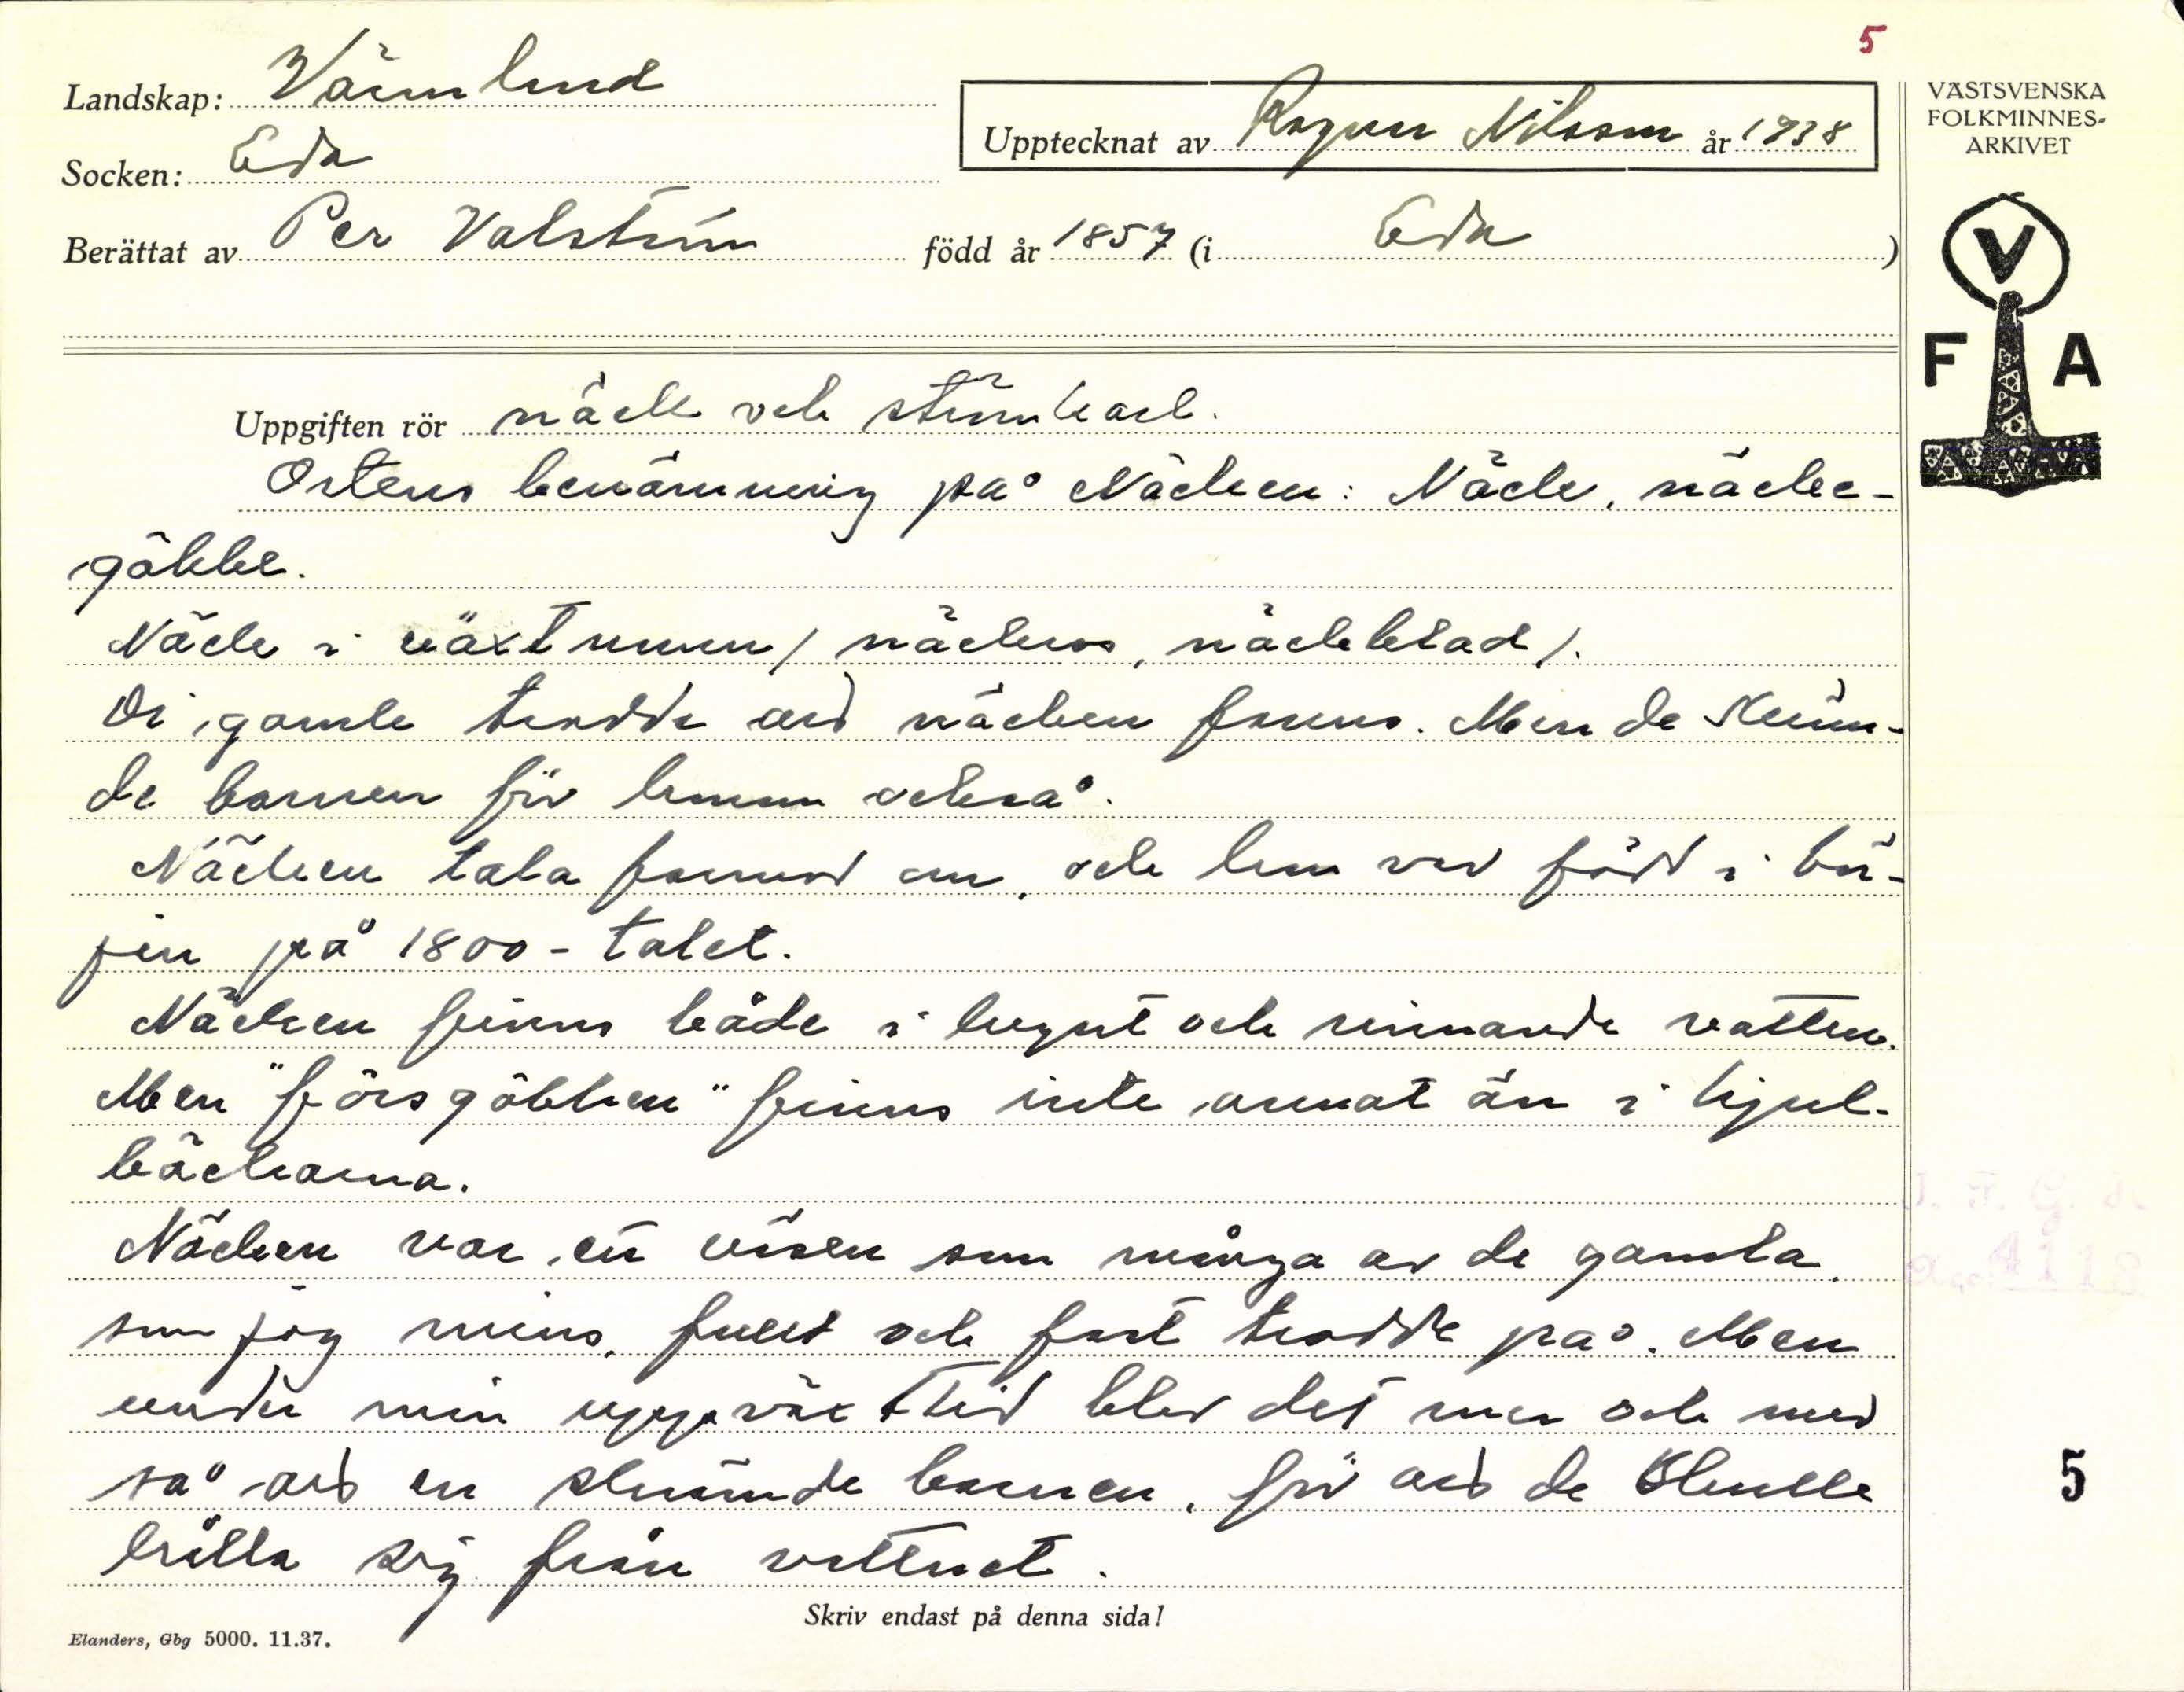 5
Landskap: Värmland
Socken: Eda
Upptecknat av Ragnar Nilsson år 1938
VÄSTSVENSKA
FOLKMINNES-
ARKIVET
Berättat av Per Valström född år 1857 (i Eda)
V
F A
Uppgiften rör näck och strömkarl.
Ortens benämning på Näcken: Näck, näcke-
göbbe.
Näck i växtnamn / näckros, näckblad /.
Di gamle trodde att näcken fanns. Men de skräm-
de barnen för honom också.
Näcken tala farmor om, och hon var född i bör-
jan på 1800-talet.
Näcken finns både i lugnt och rinnande vatten.
Men "försgöbben" finns inte annat än i hjul-
bäckarna.
Näcken var ett väsen som många av de gamla,
som jag minns, fullt och fast trodde på. Men
under min uppväxttid blev det mer och mer
så att en skrämde barnen, för att de skulle
hålla sig från vattnet.
5
Skriv endast på denna sida!
Elanders, Gbg 5000. 11.37.